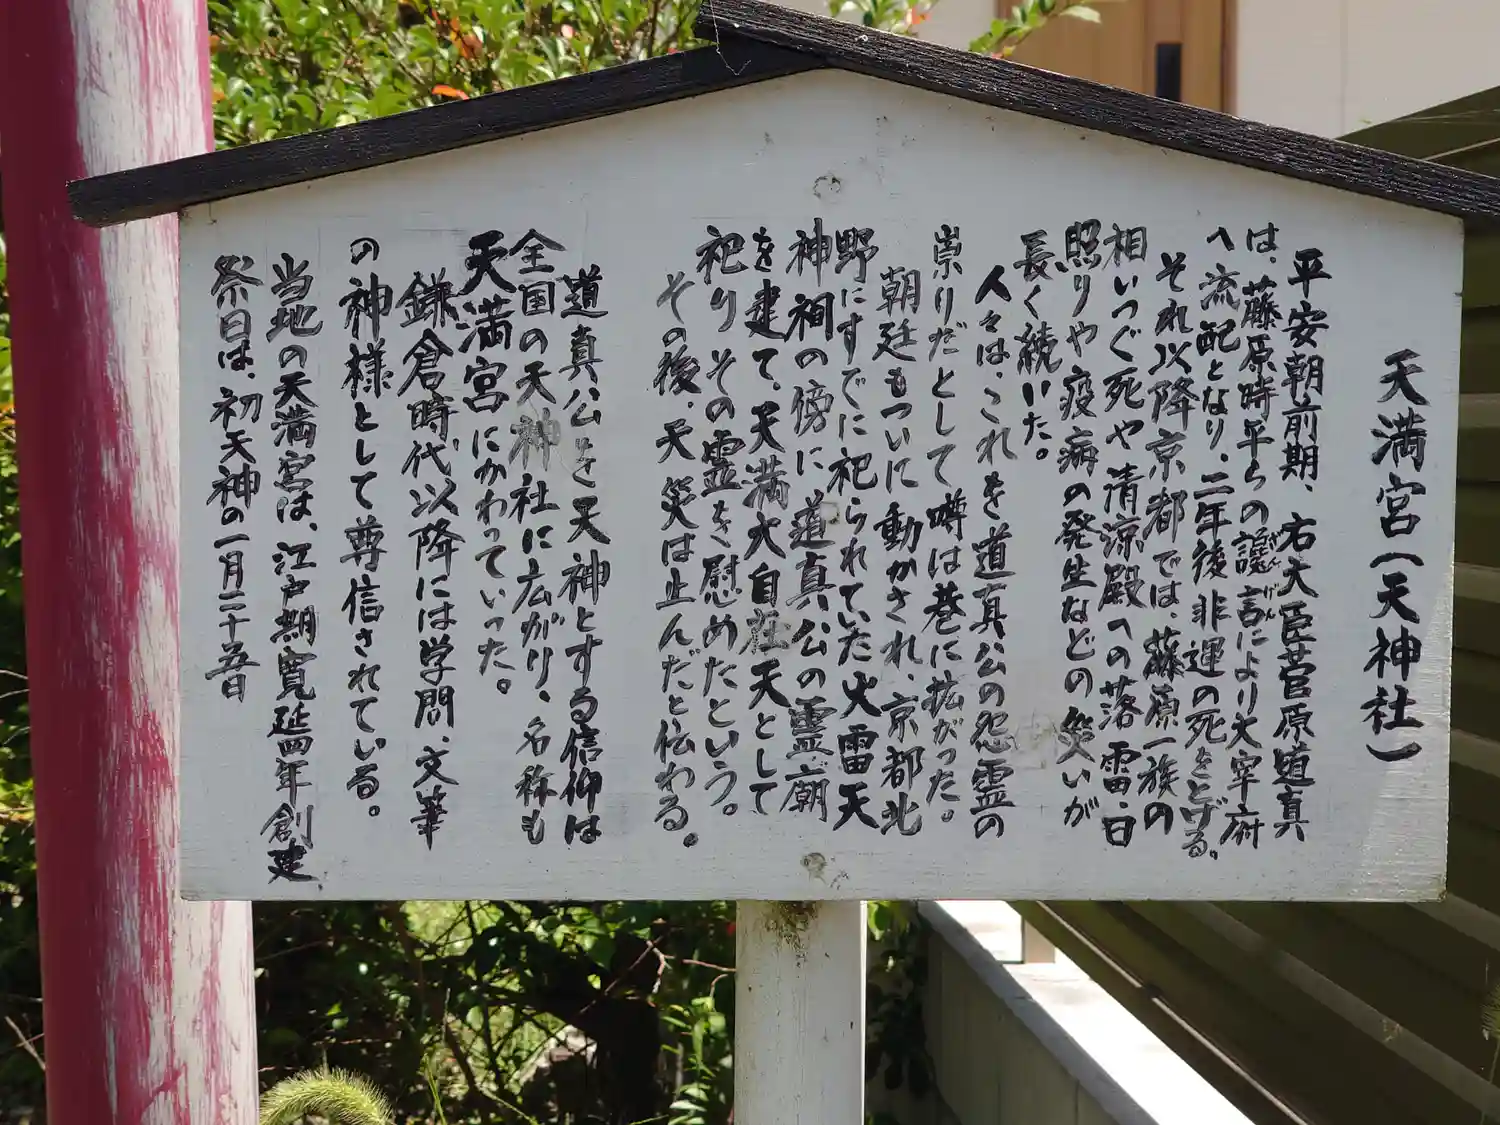 天満宮(天神社)
平安朝前期、右大臣菅原道真
は、藤原時平らの讒言により大宰府
ざんげん
へ流配となり、二年後非運の死をとげる。
それ以降京都では、藤原一族の
相いつぐ死や清涼殿への落雷・日
照りや疫病の発生などの災いが
長く続いた。
人々は、これを道真公の怨霊の
崇りだとして噂は巷に拡がった。
朝廷もついに動かされ、京都北
野にすでに祀られていた火雷天
神祠の傍に道真公の霊廟
を建て、天満大自在天として
祀りその霊を慰めたという。
その後、天災は止んだと伝わる。
道真公を天神とする信仰は
全国の天神社に広がり、名称も
天満宮にかわっていった。
鎌倉時代以降には学問、文筆
の神様として尊信されている。
当地の天満宮は、江戸期寛延四年創建
祭日は、初天神の一月二十五日